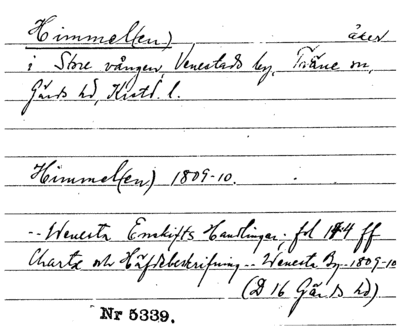 Himmel(en) åker
i Store vången, Venestads by, Träne sn,
Gärds hd, Krist. l.
Himmel(en) 1809-10.
-- Wenesta Enskifts Handlingar, fol 144 ff
Charta och Häfdebeskrifning -- Wenesta By 1809-10
(D 16 Gärds hd)
Nr 5339.